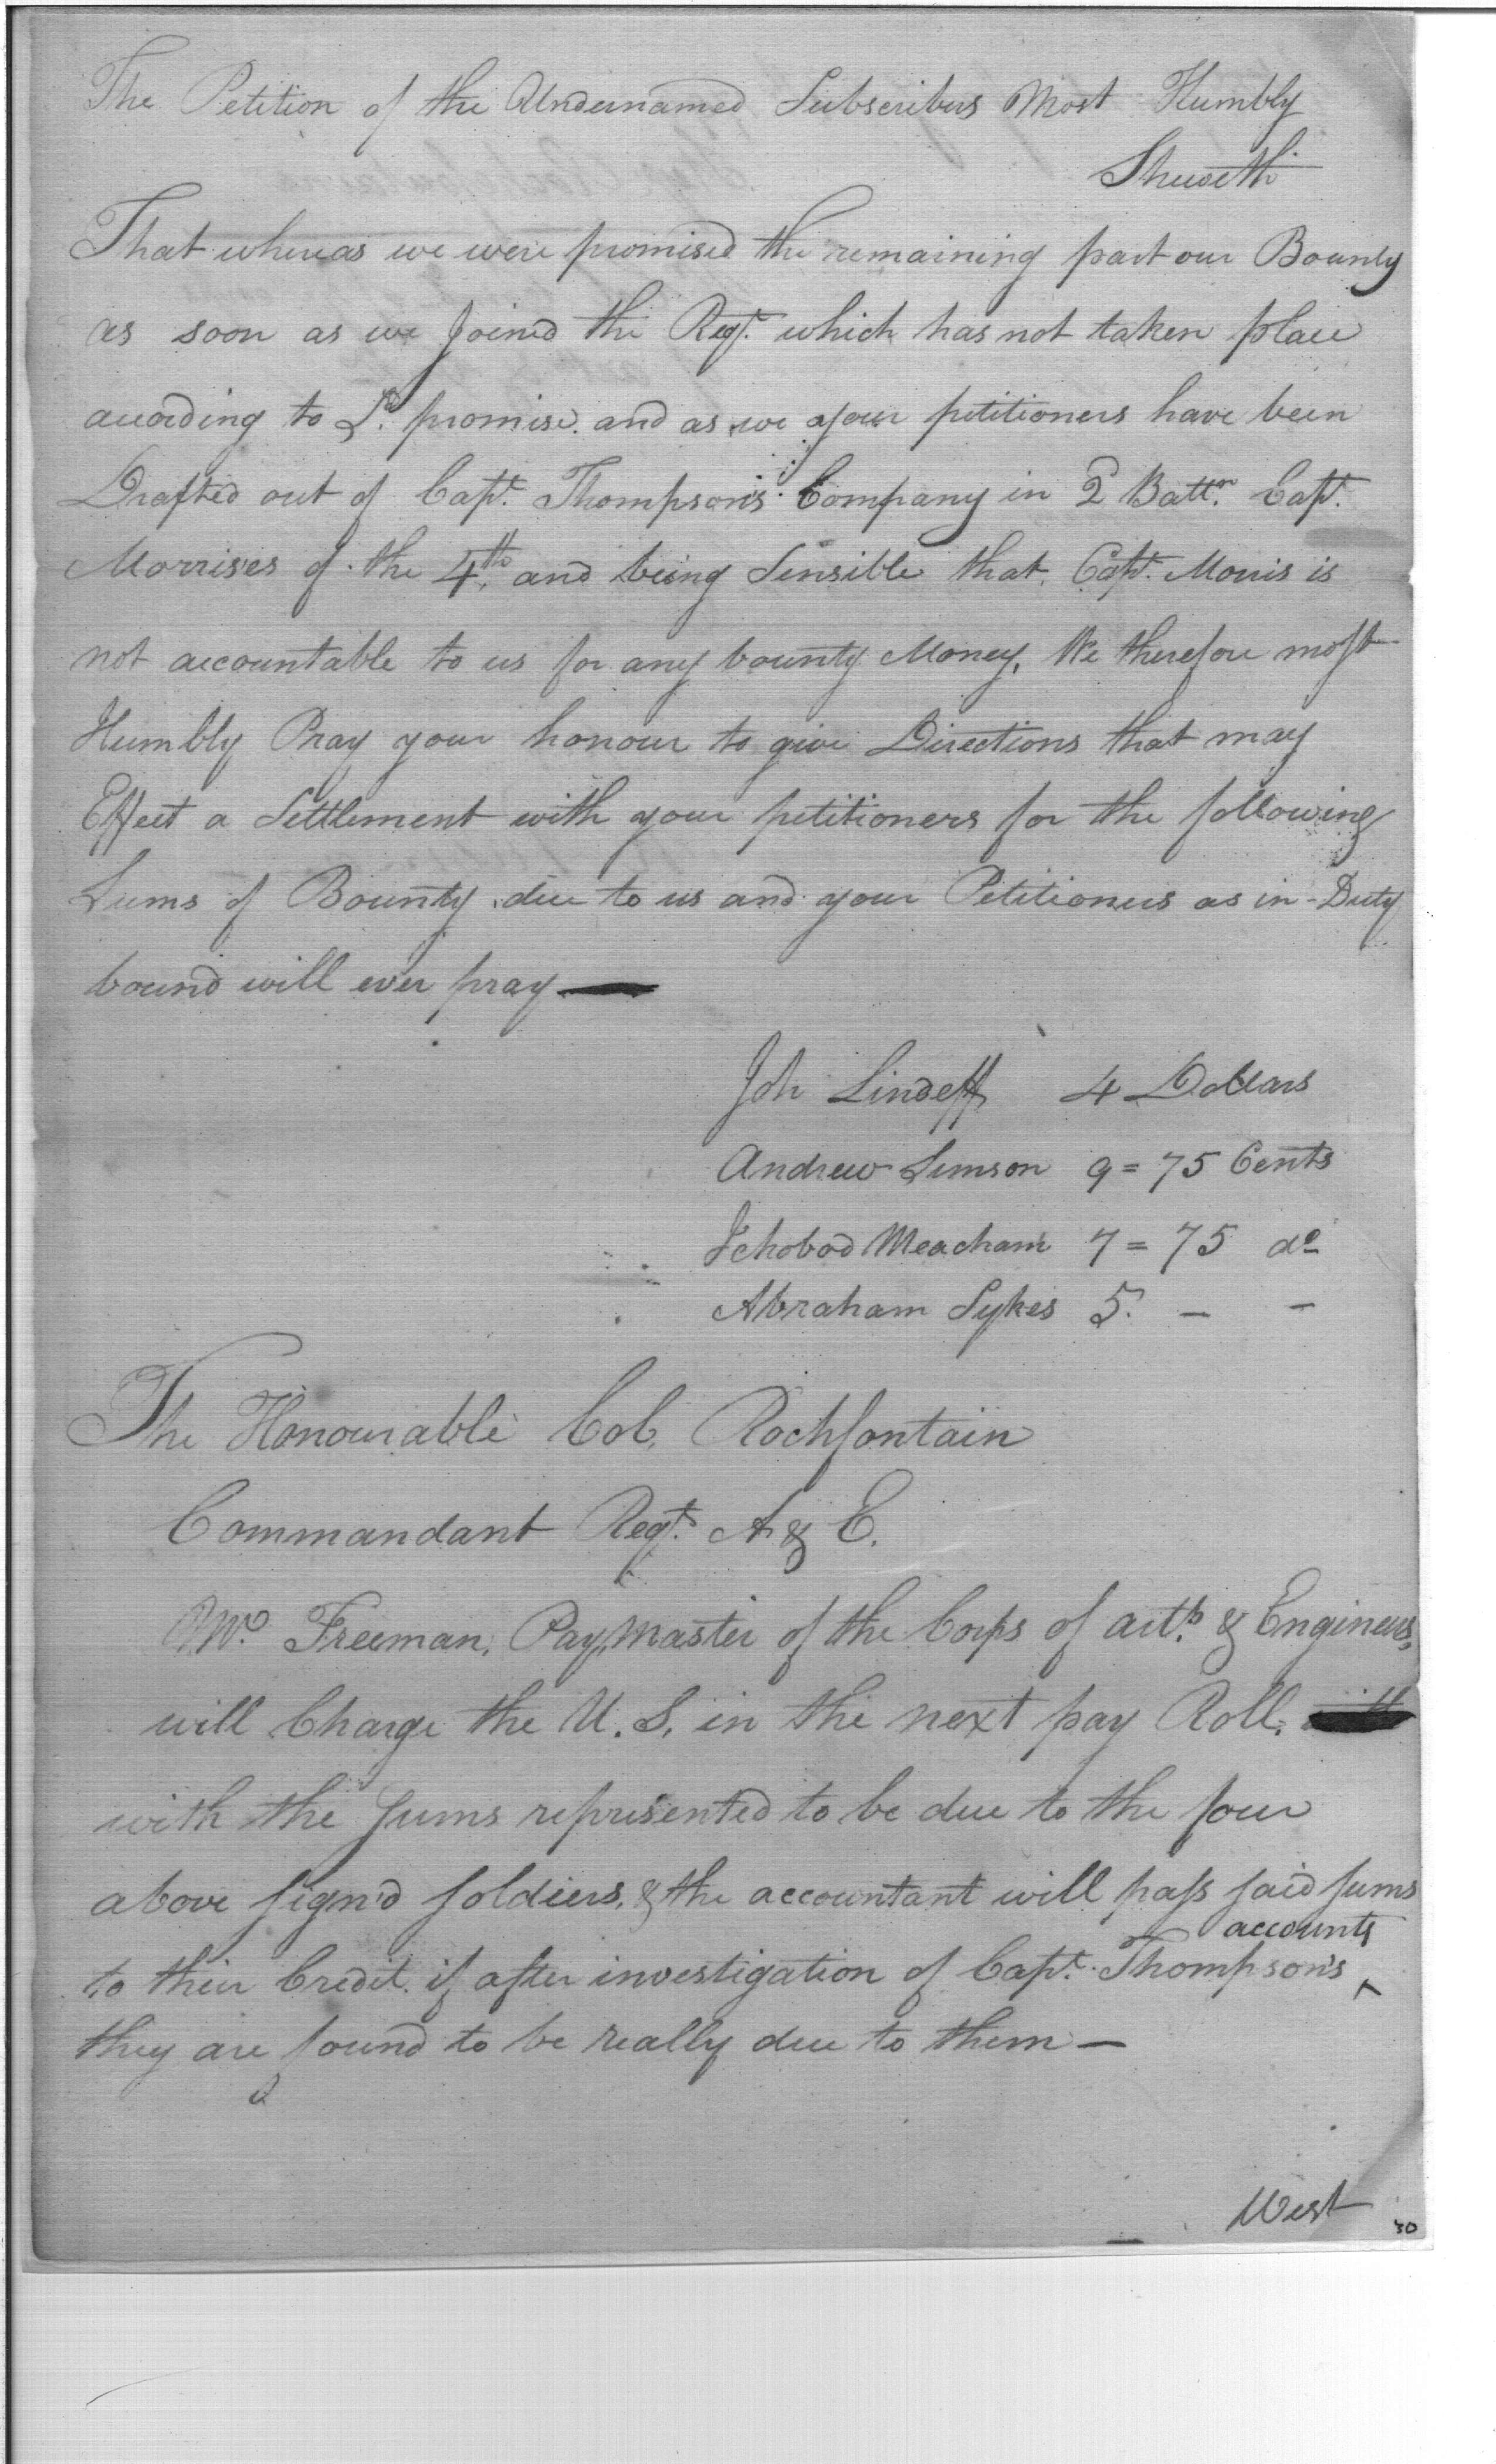 The Petition of the Undernamed Subscribers Most Humbly
Sheweth
That whereas we were promised the remaining part our Bounty
as soon as we Joined the Regt. which has not taken place
according to Sd. promise. and as we your petitioners have been
Drafted out of Capt. Thompson's Company in 2 Battn. Capt.
Morrises of the 4th. and being Sensible that Capt. Morris is
not accountable to us for any bounty Money, We therefore most
Humbly Pray your honour to give Directions that may
Effect a Settlement with your petitioners for the following
Sums of Bounty due to us and your Petitioners as in Duty
bound will ever pray —
Joh 4 Dollars
Andrew Simson 9 = 75 Cents
Ichobod Meacham 7 = 75 do
Abraham Sykes 5. — —
The Honourable Col. Rochfontain
Commandant Regt. A & E.
Mr. Freeman, Pay Master of the Corps of arts. & Engineers,
will Charge the U. S. in the next pay Roll.
with the Sums represented to be due to the four
above Sign'd Soldiers, & the accountant will pass said Sums
accounts
to their Credit if after investigation of Capt. Thompson's ^
they are found to be really due to them —
West
30